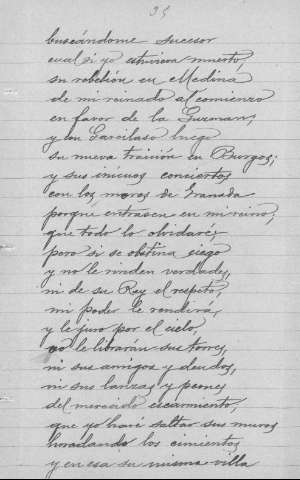 35
buscándome sucesor
cual si yo estuviera muerto,
su rebelión en Medina
de mi reinado al comienzo
en favor de la Guzman,
y con Garcilaso luego
su nueva traición en Burgos;
y sus inicuos conciertos
con los moros de Granada
porque entrasen en mi reino,
que todo lo olvidaré;
pero si se obstina ciego
y no le rinden verdades,
ni de su Rey el respeto,
mi poder le rendirá,
y le juro por el cielo,
no le librarán sus torres,
ni sus amigos y deudos,
ni sus lanzas y peones
del merecido escarmiento,
que yo haré saltar sus muros
horadando los cimientos
y en esa su misma villa